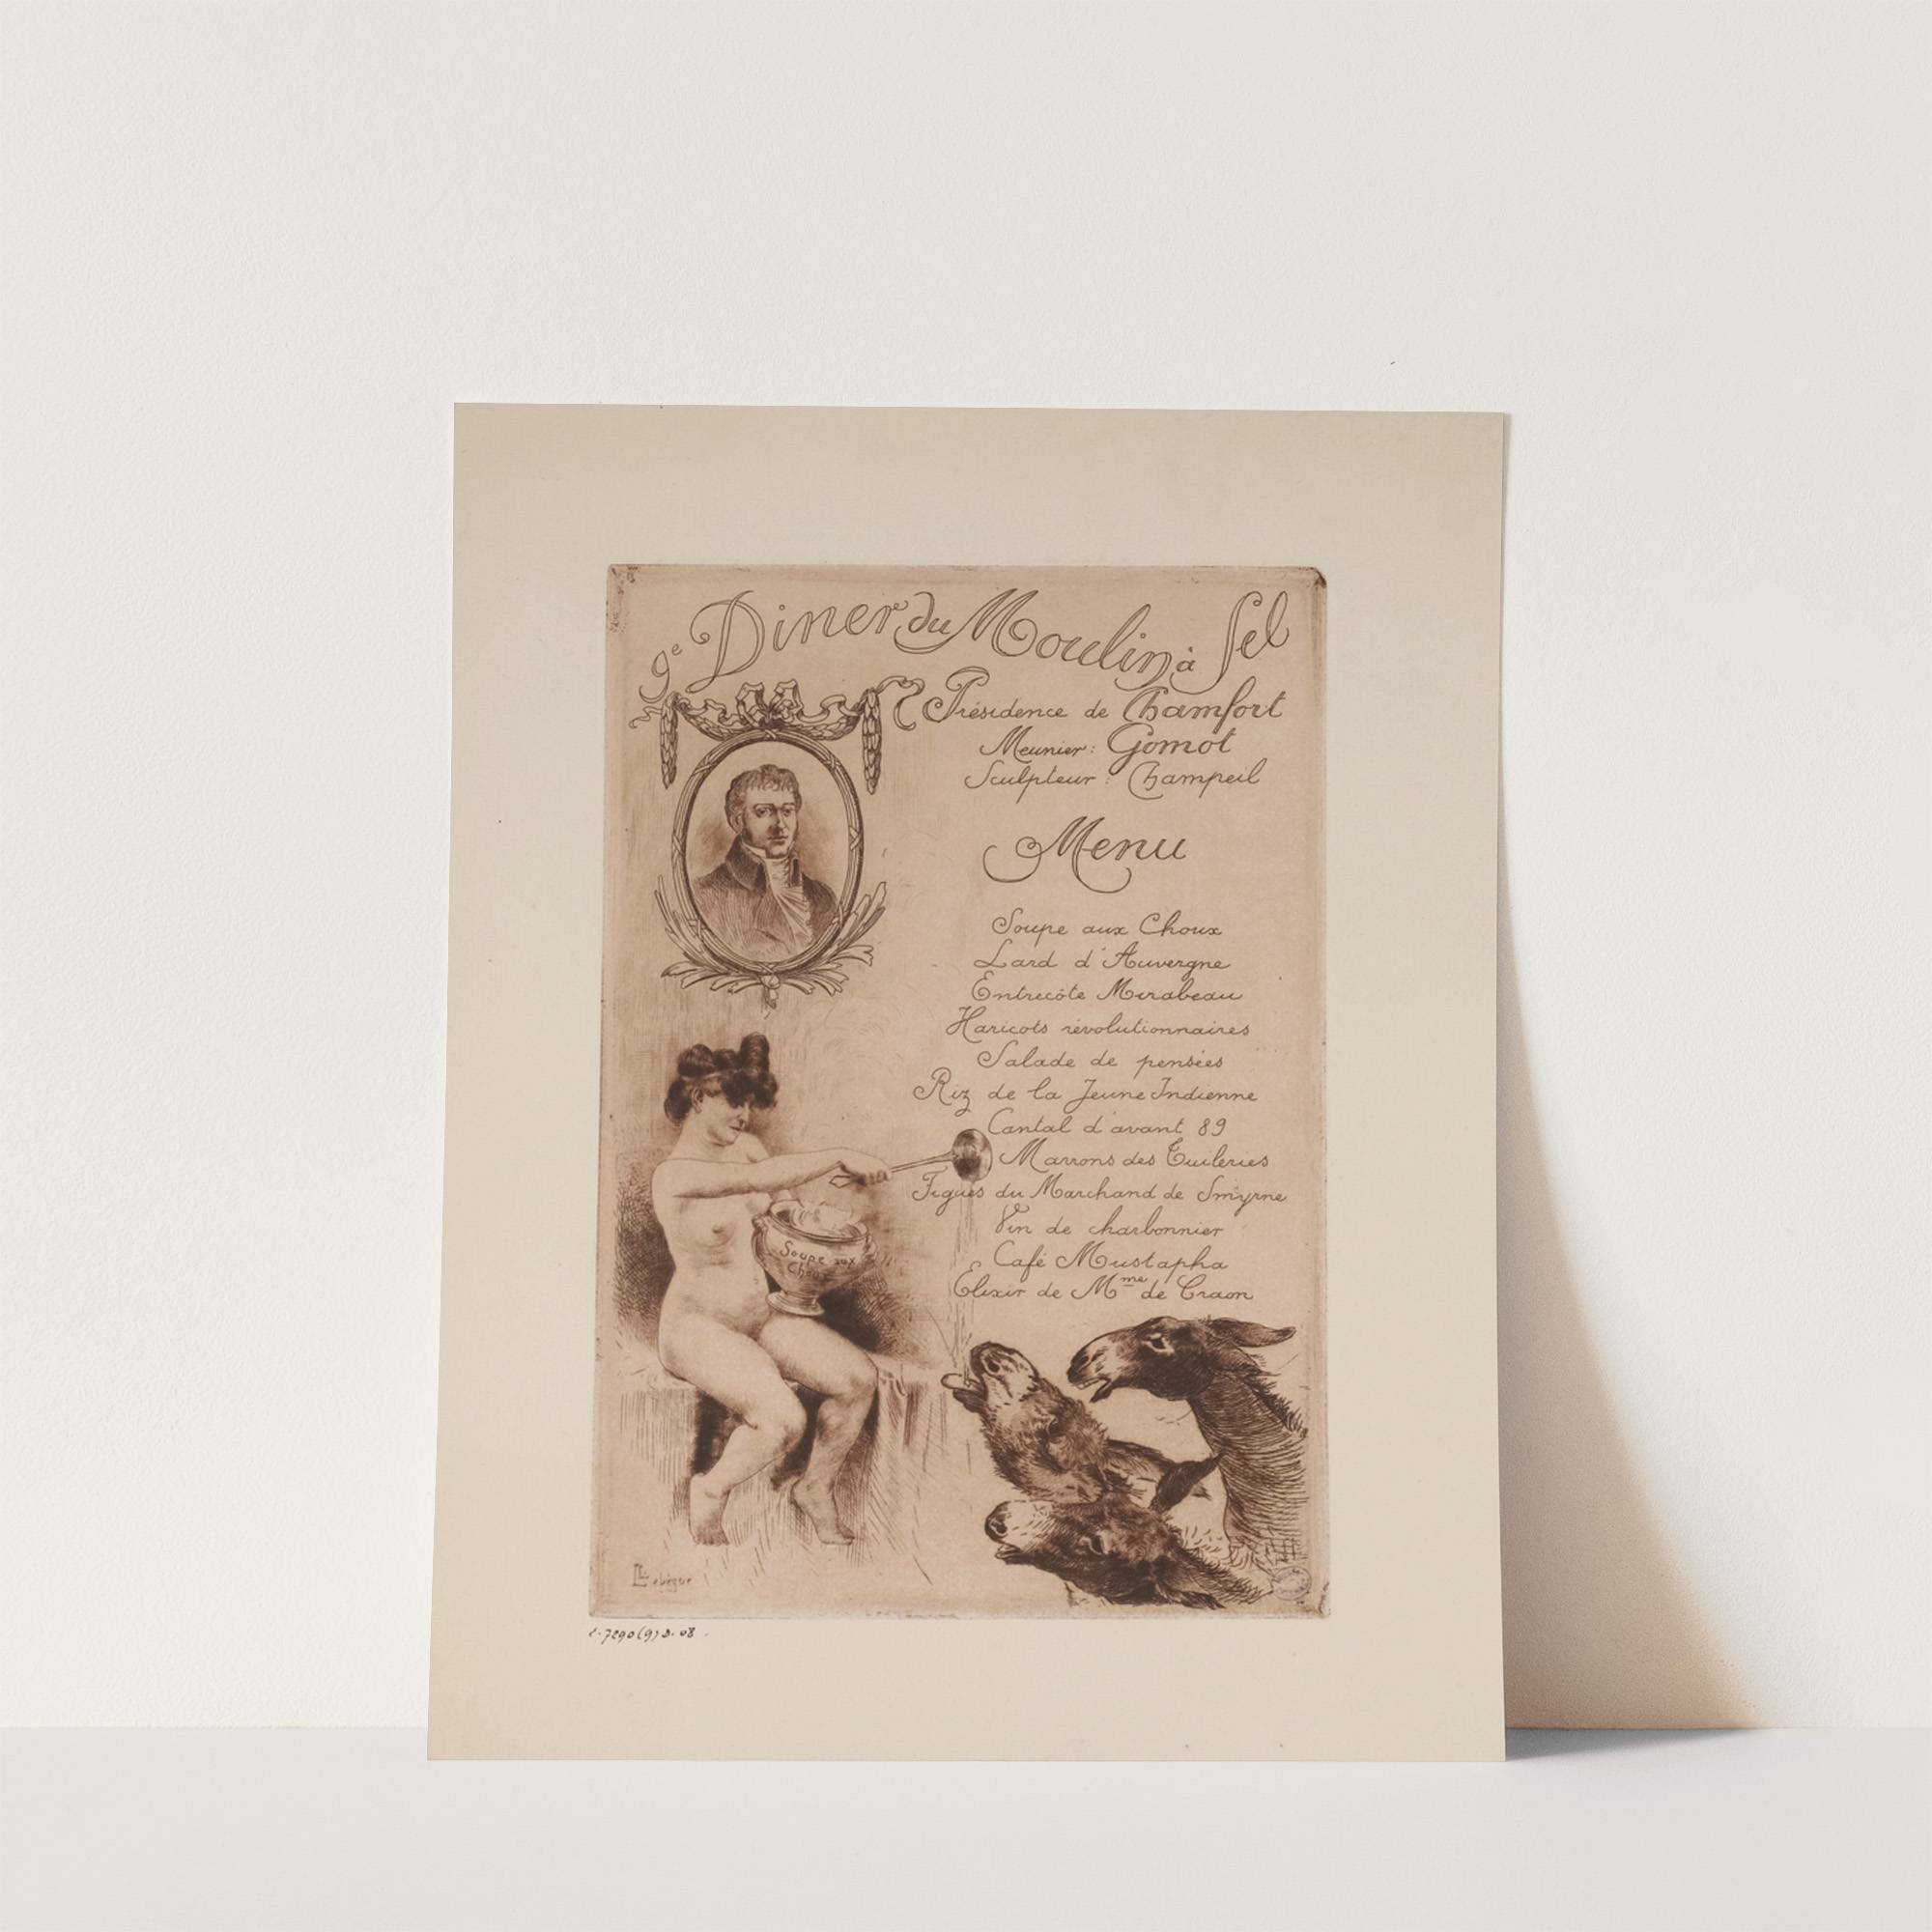 9e Diner du Moulin à Sel
Présidence de Chamfort
Meunier: Gomot
Sculpteur: Champeil
Menu
Soupe aux Choux
Lard d'Auvergne
Entrecôte Mirabeau
Haricots révolutionnaires
Salade de pensées
Riz de la Jeune Indienne
Cantal d'avant 89
Marrons des Tuileries
Figues du Marchand de Smyrne
Vin de charbonnier
Café Mustapha
Elixir de Mme de Craon
Soupe aux
Choux
L Lebègue